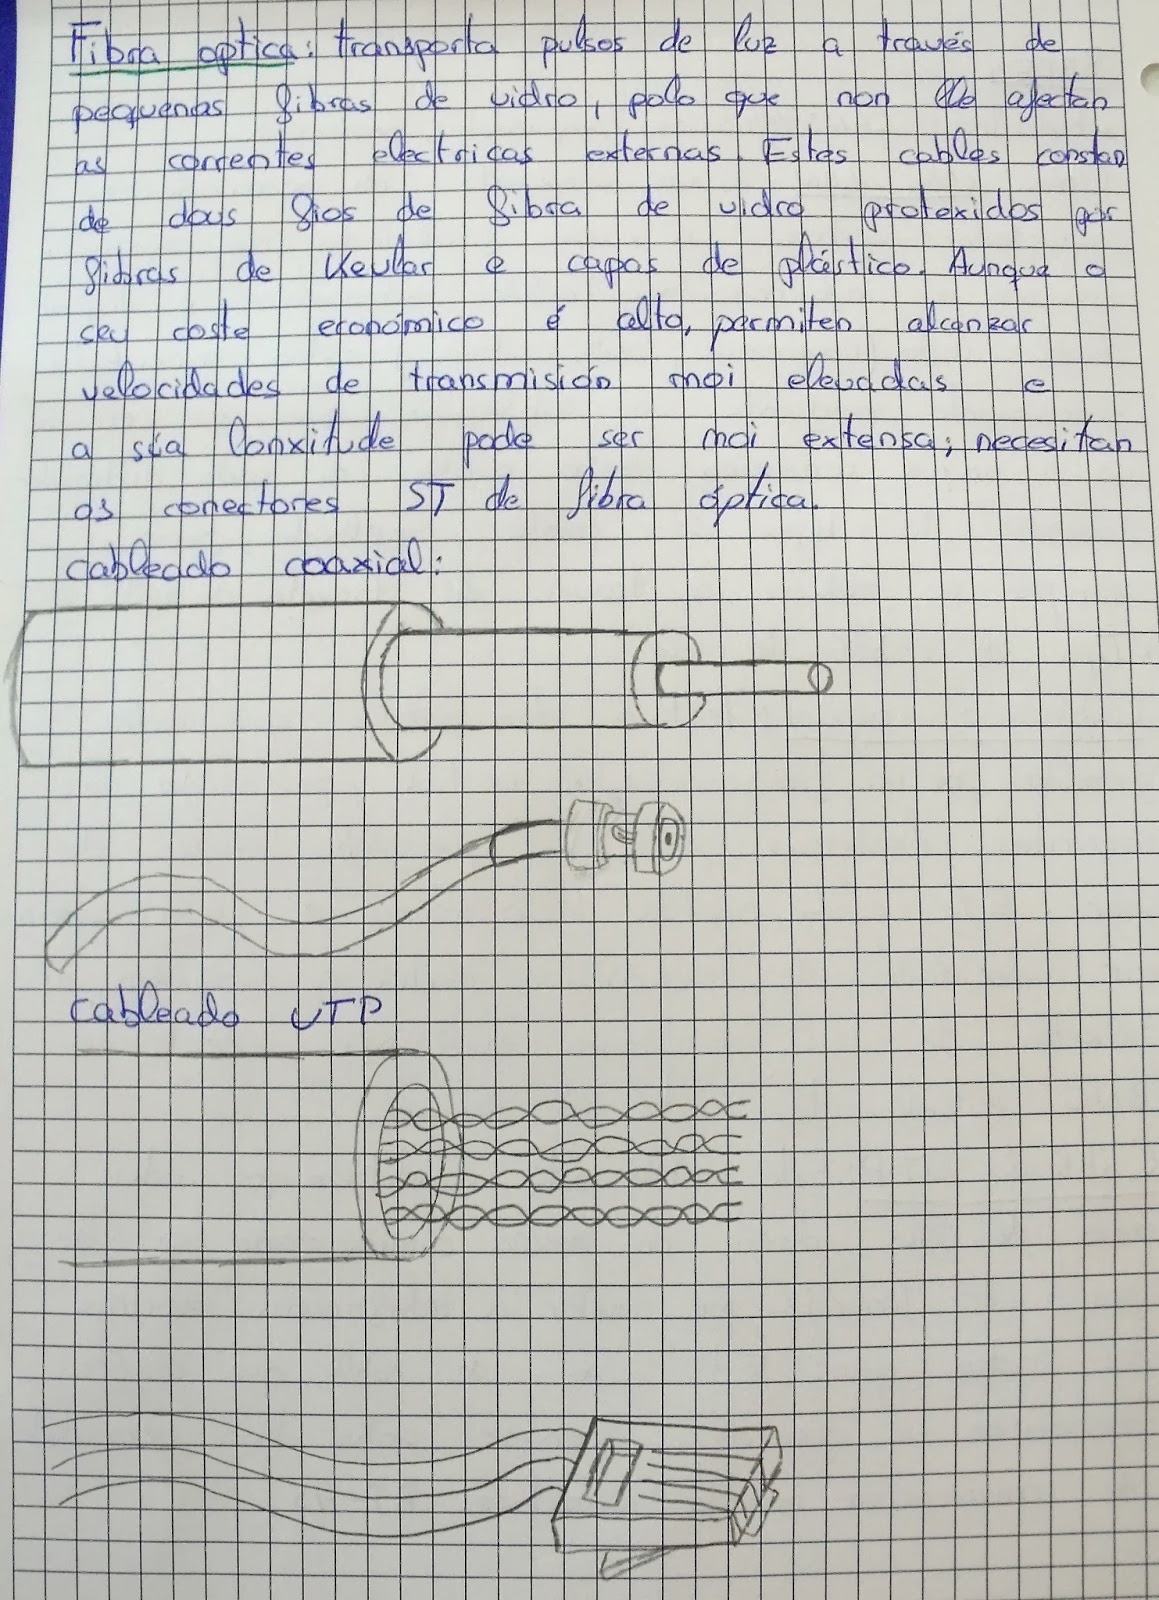 Fibra optica: transporta pulsos de luz a través de
pequenas fibras de vidro, polo que non lle afectan
as correntes electricas externas. Estes cables constan
de dous fios de fibra de vidro protexidos por
fibras de Kevlar e capas de plástico. Aunque o
seu coste económico é alto, permiten alcanzar
velocidades de transmisión moi elevadas e
a súa lonxitude pode ser moi extensa; necesitan
os conectores ST de fibra óptica.
cableado coaxial:
cableado UTP